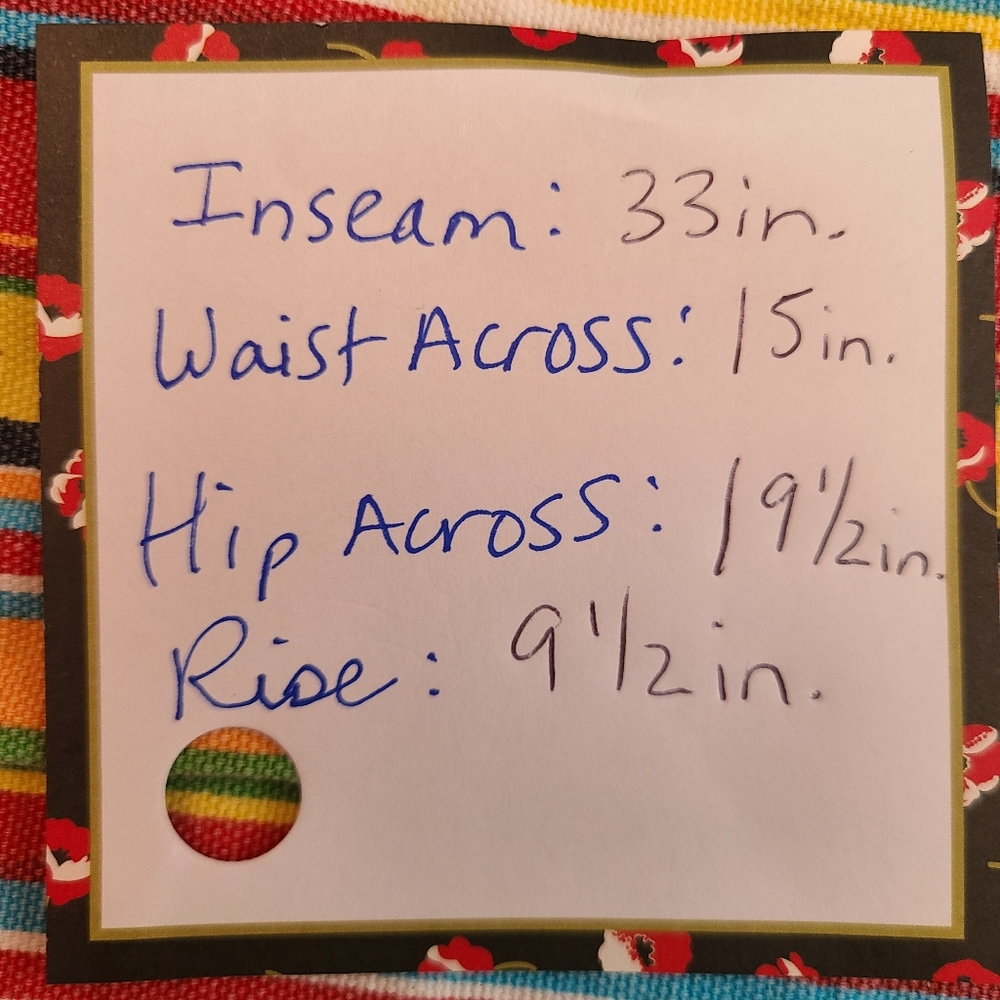 Inseam: 33in.
Waist Across: 15in.
Hip Across: 19 1/2in.
Rise: 9 1/2 in.